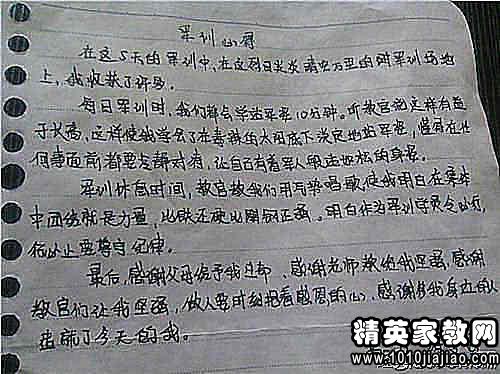 军训心得
在这5天的军训中,在这烈日炎炎晴空万里的时军训场地
上,我收获了许多。
每日军训时,我们都会学站军姿10分钟。听教官说这样有益
于长高,这样使我学会了在毒辣的太阳底下淡定地站军姿,懂得在任
何事面前都要安静对待,让自己有着军人
军训休息时间,教官教我们用气势唱歌使我明白在集体
中团结就是力量,比铁还硬比钢还强。明白作为军训学员令必行,
禁必止要尊守纪律。
最后,感谢父母给予我这却,感谢老师教给我坚强,感谢
教官们让我坚强,做人要时刻抱着感恩的心,感谢我身边的人
造就了今天的我。
精英家教网
www.1010jiajiao.com